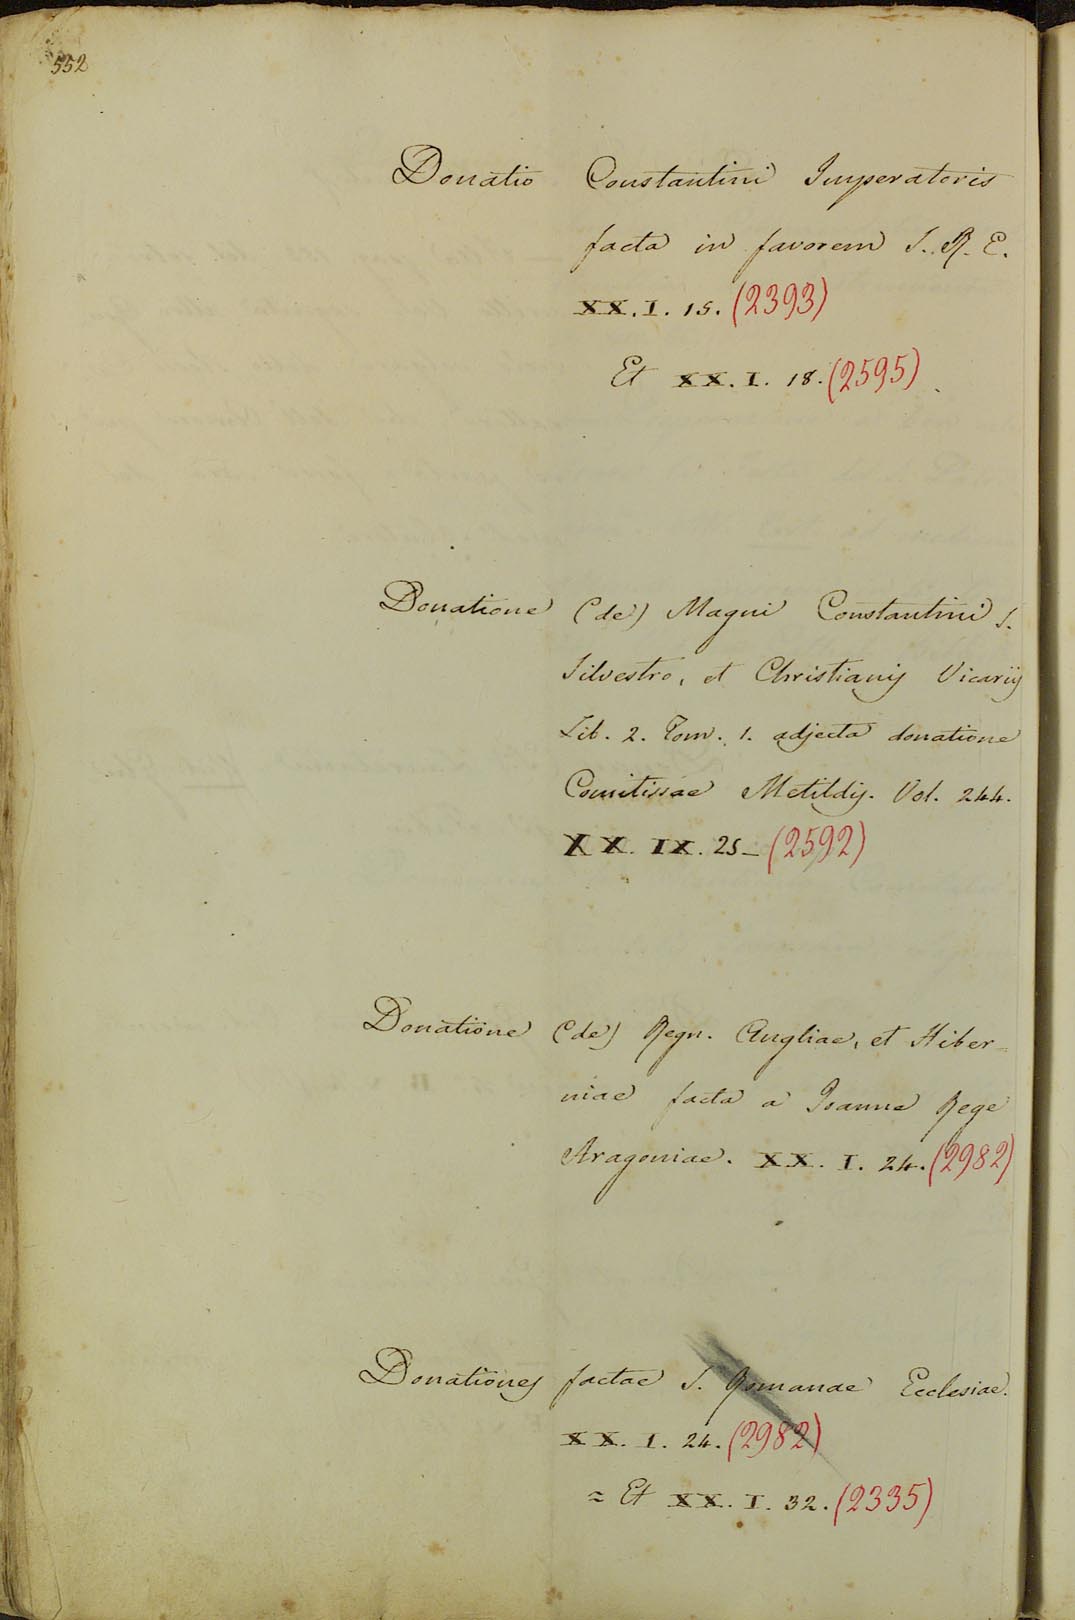 552
Donatio Constantini Imperatoris
facta in favorem S. R. E.
XX. I. 15. (2393)
Et XX. I. 18. (2595)
Donatione (de) Magni Constantini S.
Silvestro, et Christianis Vicariis
Lib. 2. Tom. 1. adjecta donatione
Comitissae Metildis. Vol. 244.
XX. IX. 25_ (2592)
Donatione (de) Regn. Angliae, et Hiber=
niae facta a Joanne Rege
Aragoniae. XX. I. 24. (2982)
Donationes factae S. Romanae Ecclesiae.
XX. I. 24. (2982)
= Et XX. I. 32. (2335)